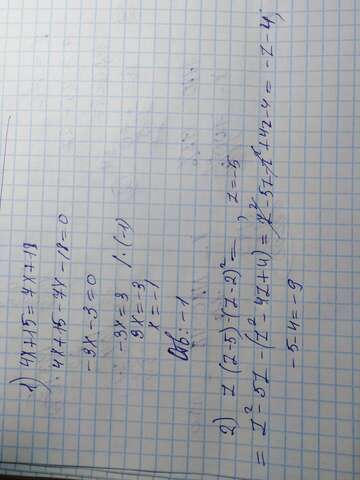 1) 4x+15=7x+18
4x+15-7x-18=0
-3x-3=0
-3x=3 /·(-1)
3x=-3
x=-1
Отв: -1
2) z(z-5)-(z-2)²= , z=-5
= z²-5z-(z²-4z+4)=z²-5z-z²+4z-4=-z-4;
-5-4=-9